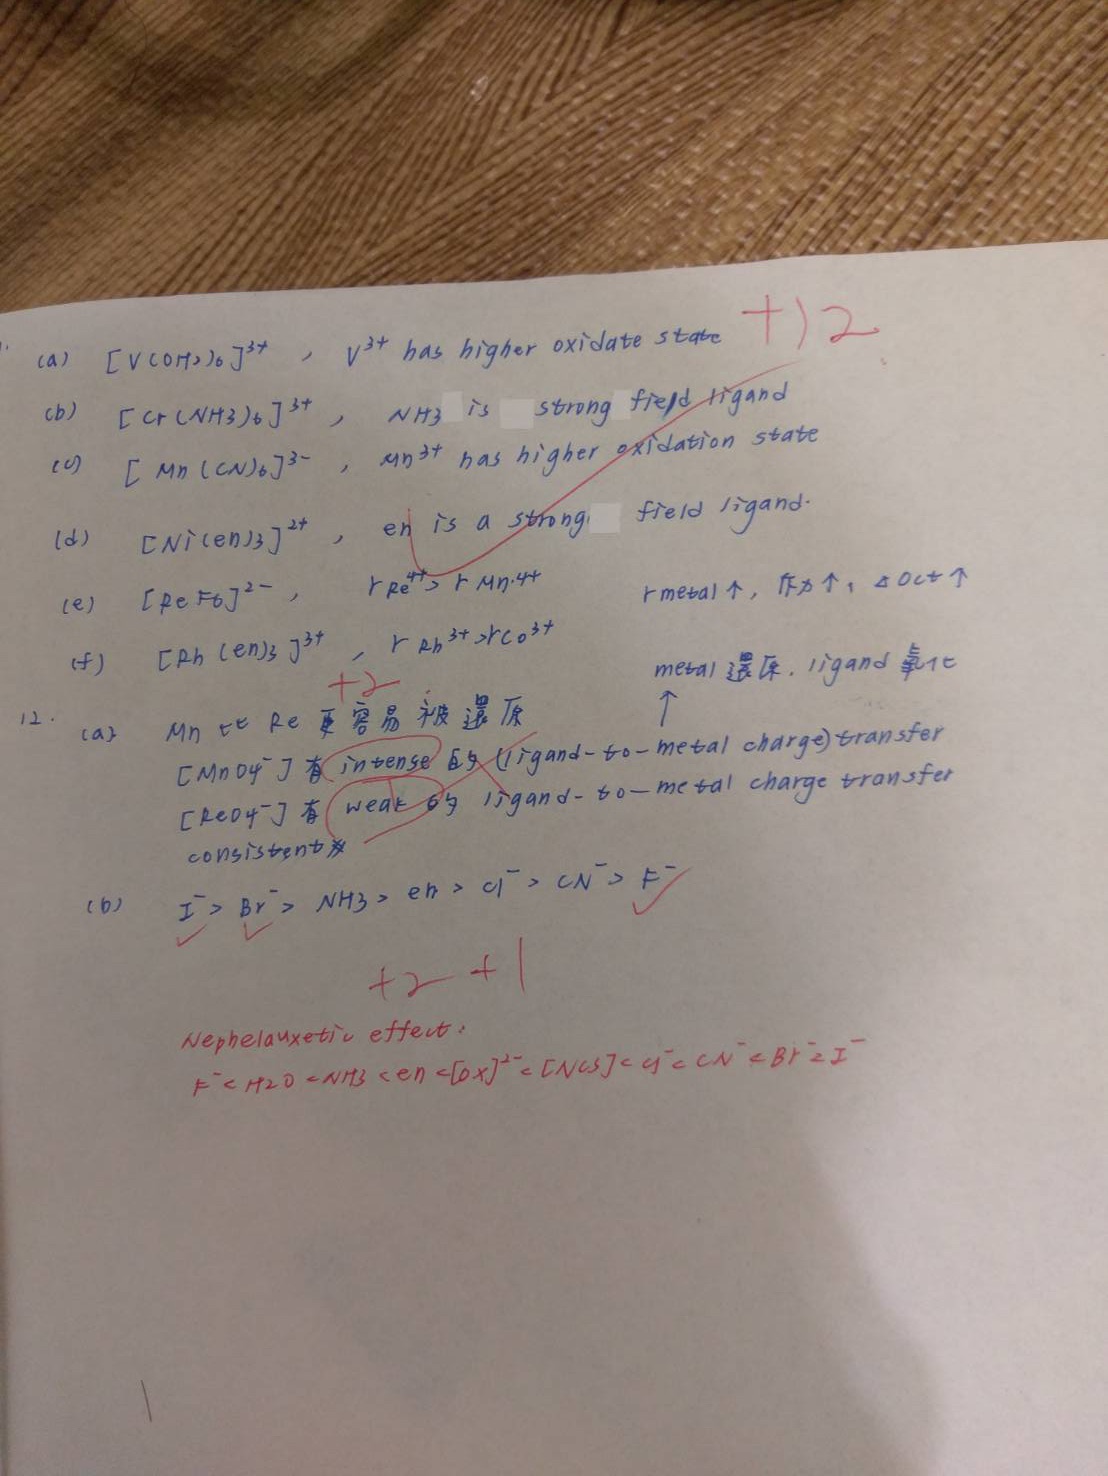 (a) [V(OH2)6]3+ , V3+ has higher oxidate state +12
(b) [Cr(NH3)6]3+ , NH3 is strong field ligand
(c) [Mn(CN)6]3- , Mn3+ has higher oxidation state
(d) [Ni(en)3]2+ , en is a strong field ligand.
(e) [ReF6]2- , r Re4+ > r Mn4+ r metal↑, 作力↑, ΔOct↑
(f) [Rh(en)3]3+ , r Rh3+ > r Co3+
metal 還原. ligand 氧化
+2 ↑
12. (a) Mn 比 Re 更容易被還原
[MnO4-] 有 intense 的 (ligand-to-metal charge) transfer
[ReO4-] 有 weak 的 ligand-to-metal charge transfer
consistent
(b) I- > Br- > NH3 > en > Cl- > CN- > F-
+2 +1
Nephelauxetic effect:
F- < H2O < NH3 < en < [ox]2- < [NCS] < Cl- < CN- < Br- < I-